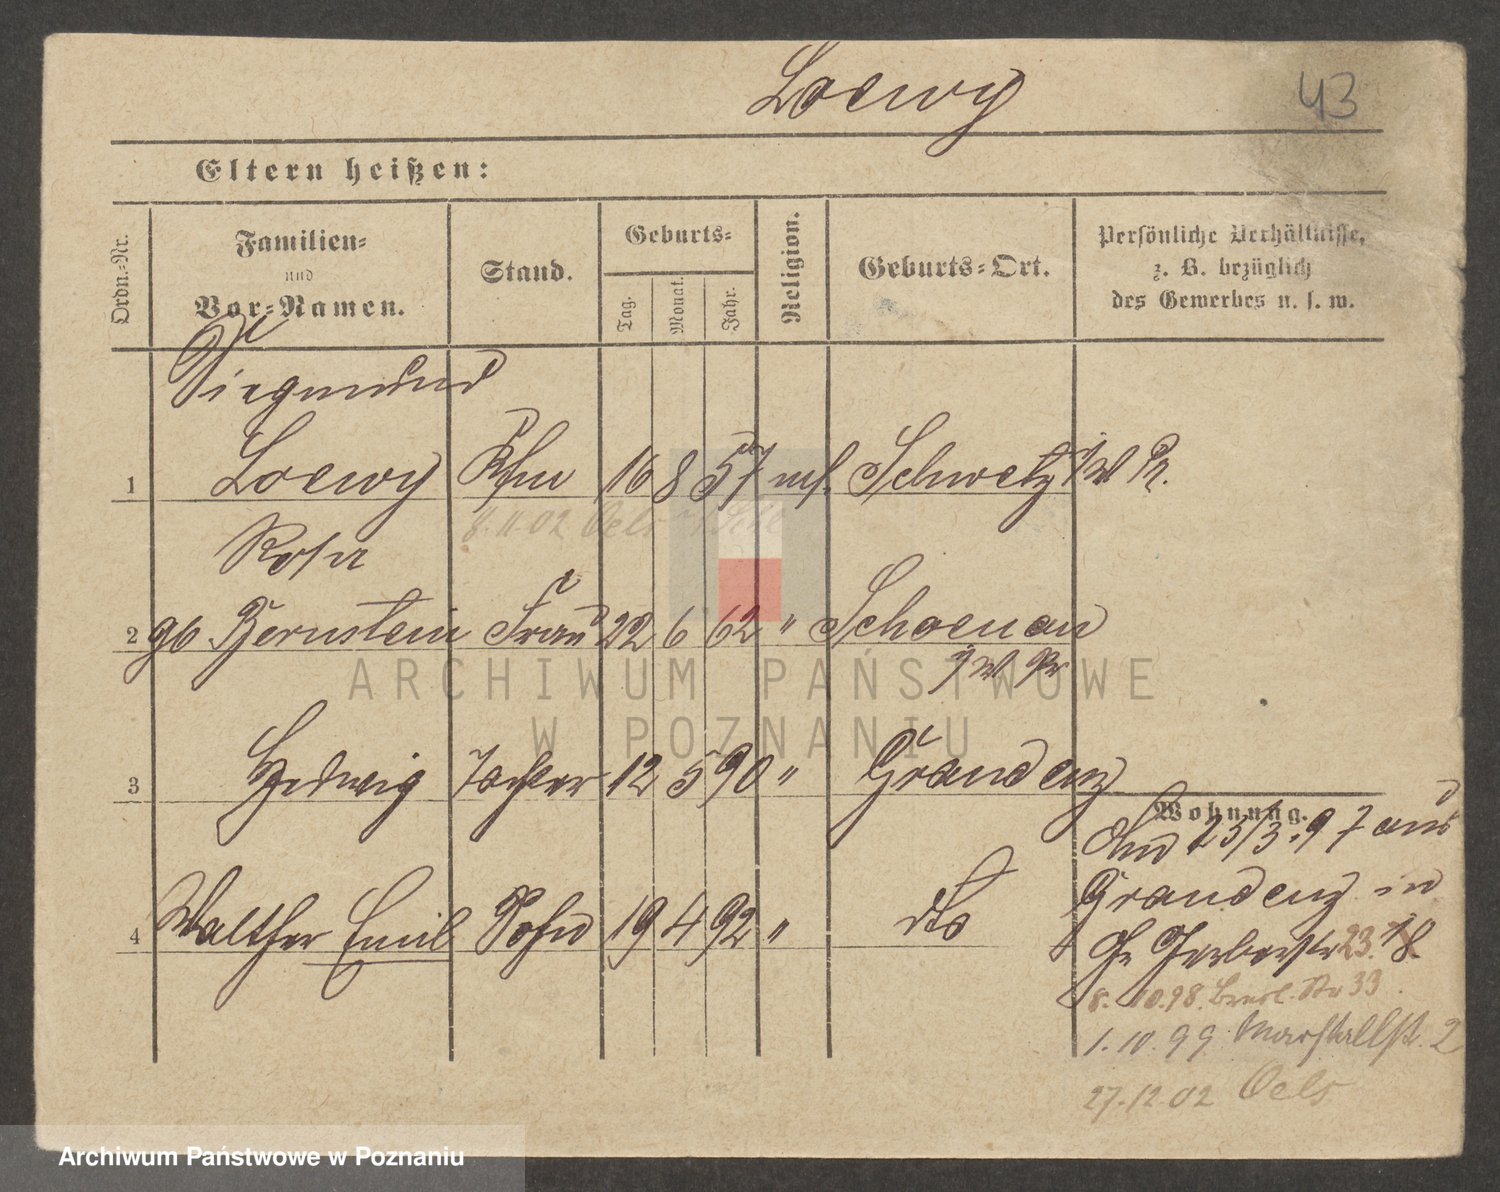 Loewy
43
Eltern heißen:
Ordn.-Nr.
Familien-
und
Vor-Namen.
Stand.
Geburts-
Tag.
Monat.
Jahr.
Religion.
Geburts-Ort.
Persönliche Verhältnisse,
z. B. bezüglich
des Gewerbes u. s. w.
Siegmund
1 Loewy Kfm 16 8 57 mos. Schwetz i/W Pr.
8.11 02 Oels
Rosa
2 gb Bernstein Frau 22 6 62 " Schoenau
i W Pr
3 Hedwig Tochter 12 5 90 " Graudenz
Wohnung.
Am 25/3.97 aus
Graudenz in
4 Walther Emil Sohn 19 4 92 " dto
Gr Gerberstr 23. 18.
8. 10.98. Bresl. Str 33
1.10.99 Marstallstr. 2
27.12 02 Oels
ARCHIWUM PAŃSTWOWE
W POZNANIU
Archiwum Państwowe w Poznaniu